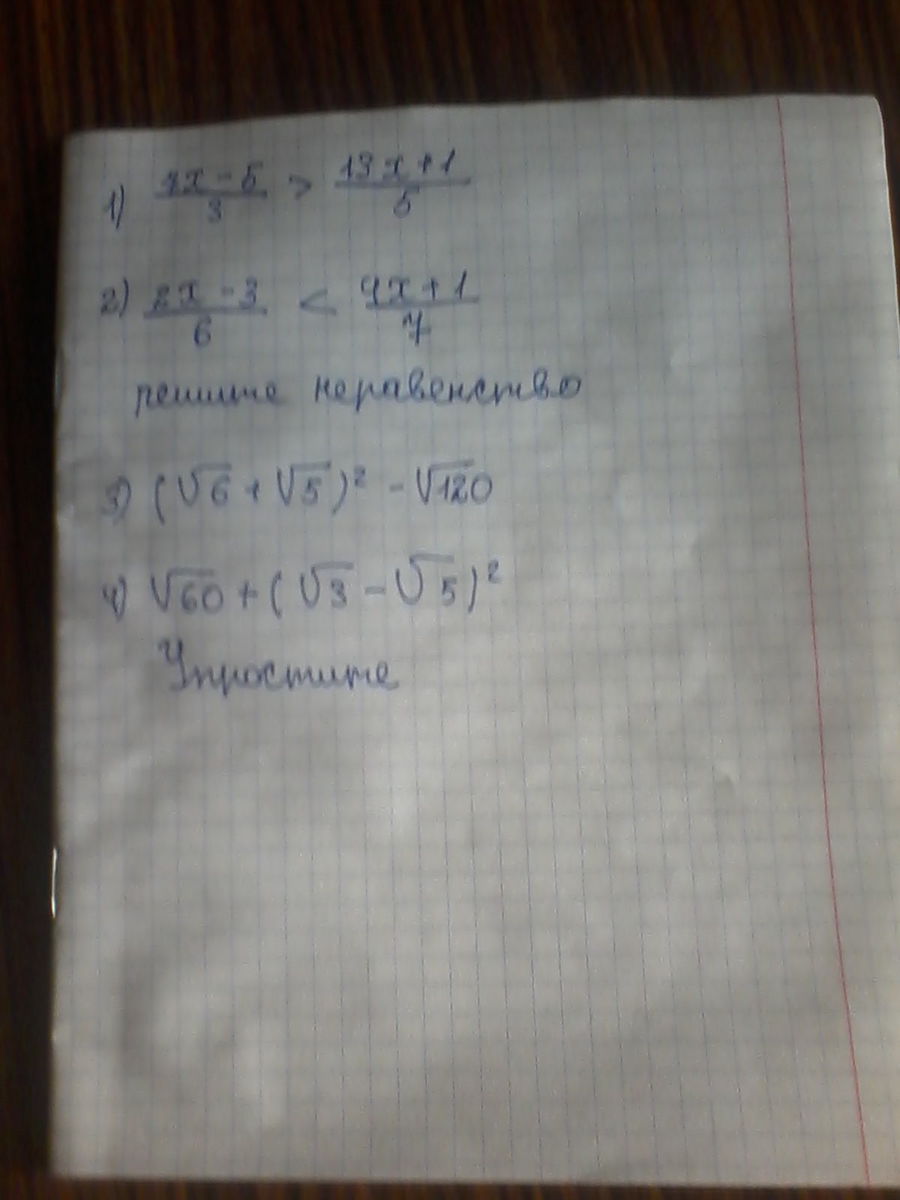 1) 7x - 5 / 3 > 13x + 1 / 5
2) 2x - 3 / 6 < 4x + 1 / 7
решите неравенство
3) (√6 + √5)² - √120
4) √60 + (√3 - √5)²
Упростите